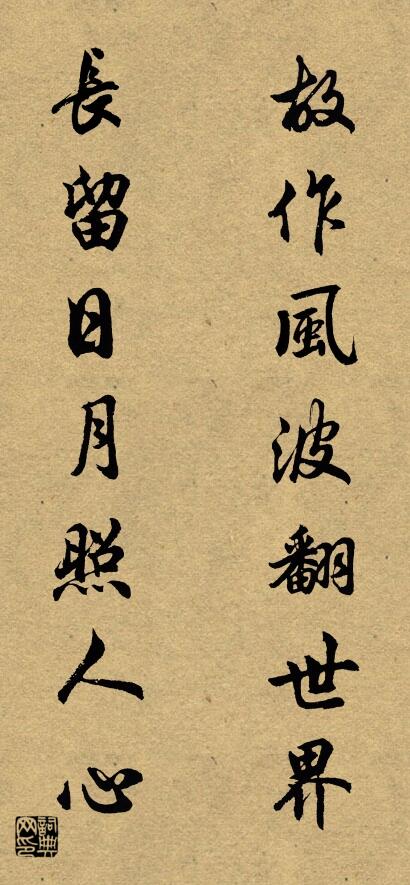 故作風波翻世界
長留日月照人心
詞典网印